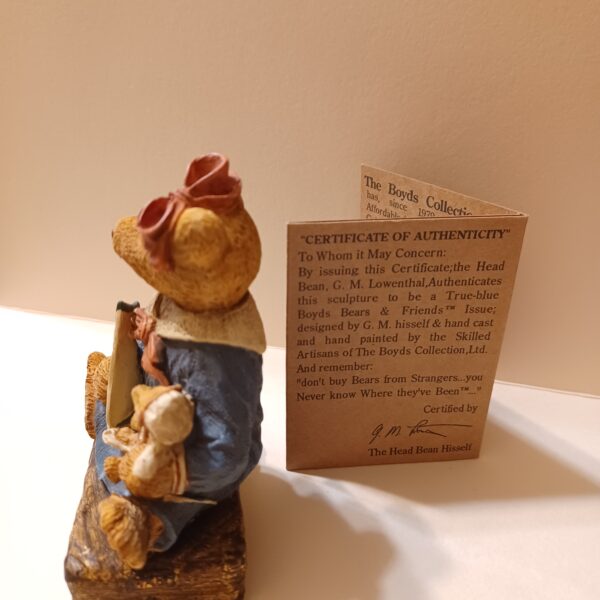 The Boyds Collection
has, since 1979
Affordable
"CERTIFICATE OF AUTHENTICITY"
To Whom it May Concern:
By issuing this Certificate;the Head
Bean, G. M. Lowenthal,Authenticates
this sculpture to be a True-blue
Boyds Bears & Friends™ Issue;
designed by G. M. hisself & hand cast
and hand painted by the Skilled
Artisans of The Boyds Collection,Ltd.
And remember:
"don't buy Bears from Strangers...you
Never know Where they've Been™..."
Certified by
The Head Bean Hisself